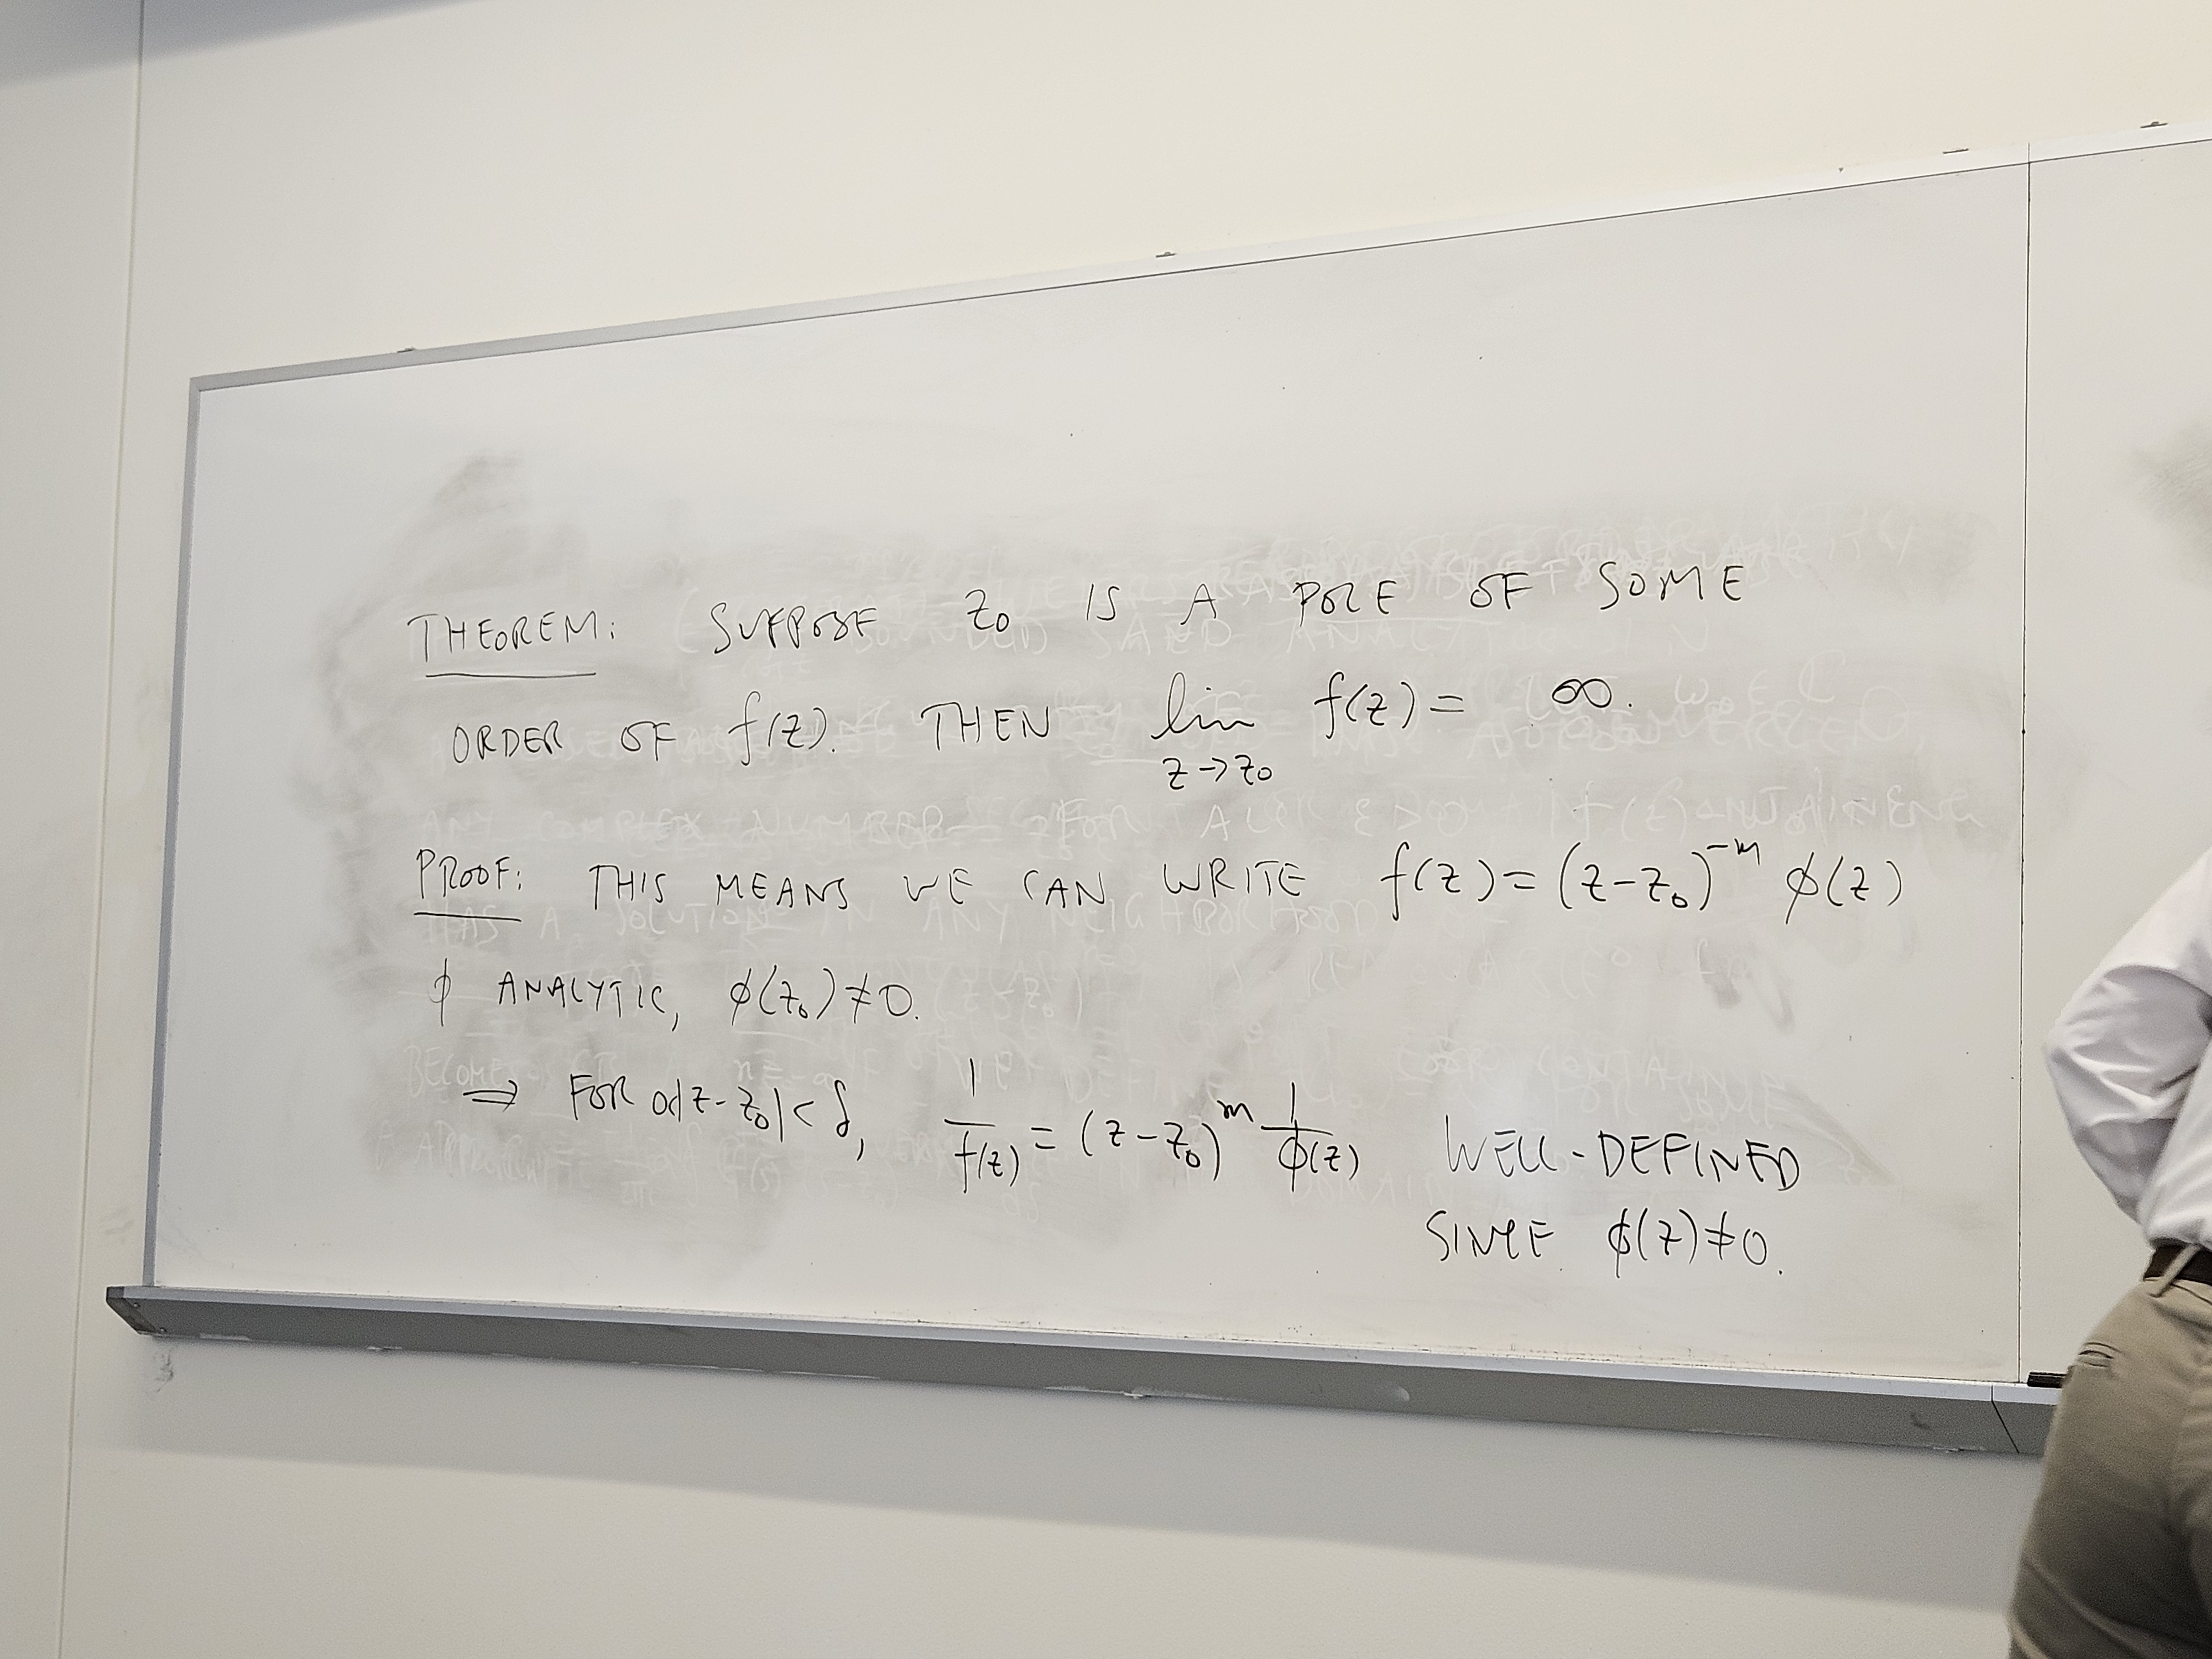 THEOREM: SUPPOSE z₀ IS A POLE OF SOME
ORDER OF f(z). THEN lim z→z₀ f(z) = ∞.
PROOF: THIS MEANS WE CAN WRITE f(z) = (z-z₀)^{-m} φ(z)
φ ANALYTIC, φ(z₀) ≠ 0.
⇒ FOR 0<|z-z₀| < δ, 1/f(z) = (z-z₀)^m 1/φ(z) WELL-DEFINED
SINCE φ(z) ≠ 0.